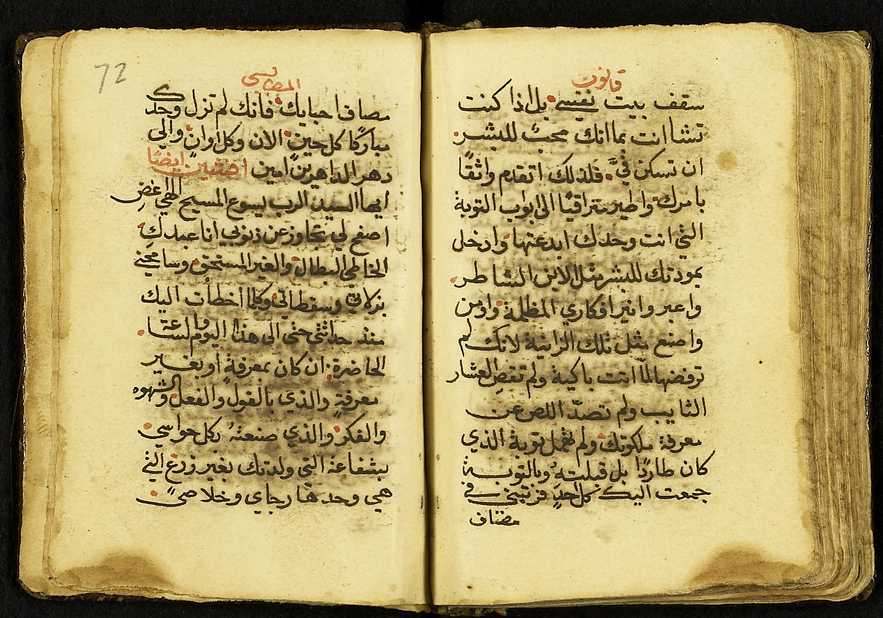 قانون
سقف بيت نفسي بل اذا كنت
تشا انت بما انك محبٌ للبشر
ان تسكن فيَّ فلذلك اتقدم واثقًا
بامرك واطير متراقيًا الى ابواب التوبة
التي انت وحدك ابدعتها وادخل
بمودتك للبشر مثل الابن الشاطر
واعبر وانير افكاري المظلمة واومن
واصنع مثل تلك الزانية لانك لم
ترفضها لما اتت باكية ولم تقصِ العشار
التايب ولم تصدّ اللص عن
معرفة ملكوتك ولم تهمل توبة الذي
كان طاردًا بل قبلته وبالتوبة
جمعت اليك كل احدٍ فرتبني في
مصاف
72
المطالبسي
مصاف احبايك فانك لم تزل وحدك
مباركًا كل حين الان وكل اوان والي
دهر الداهرين امين اخفين ايضًا
ايها السيد الرب يسوع المسيح الهي غضِ
اصفح لي تجاوز عن ذنوبي انا عبدك
الخاطي البطال والغير المستحق وسامحني
بزلاتي وسقطاتي وكلما أخطأت اليك
منذ حداثتي حتي الى هذا اليوم والساعة
الحاضرة ان كان بمعرفة أو بغير
معرفة والذي بالقول والفعل والشهوه
والفكر والذي صنعتهُ بكل حواسي
بشفاعة التي ولدتك بغير زرع التي
هي وحدها رجاي وخلاصي